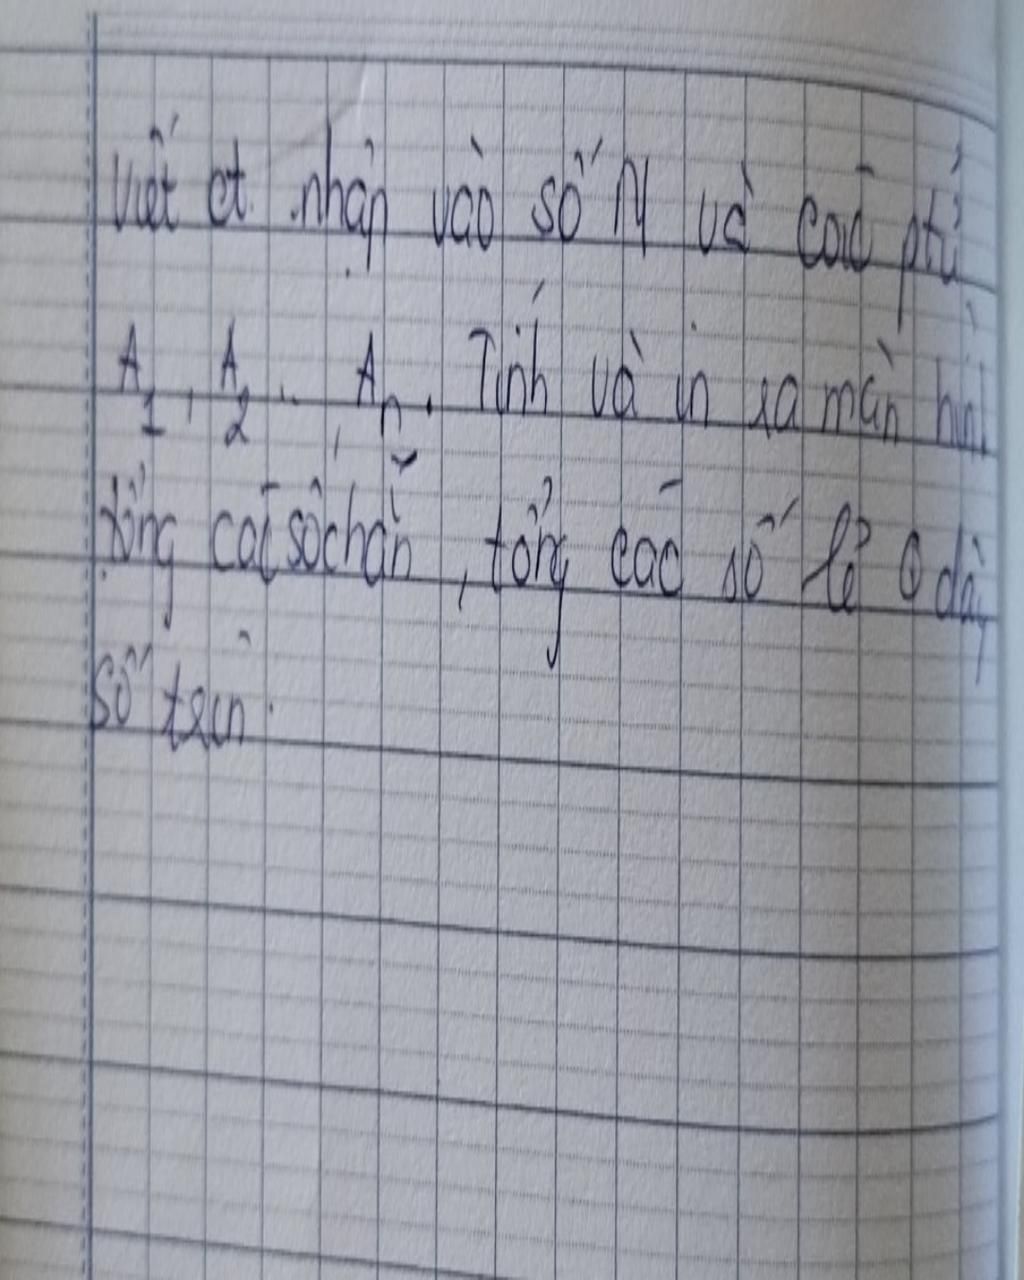 Viết ct nhập vào số N và các ptử
A1, A2, .. An. Tính và in ra màn hình
tổng các số chẵn, tổng các số lẻ ở dãy
số trên.